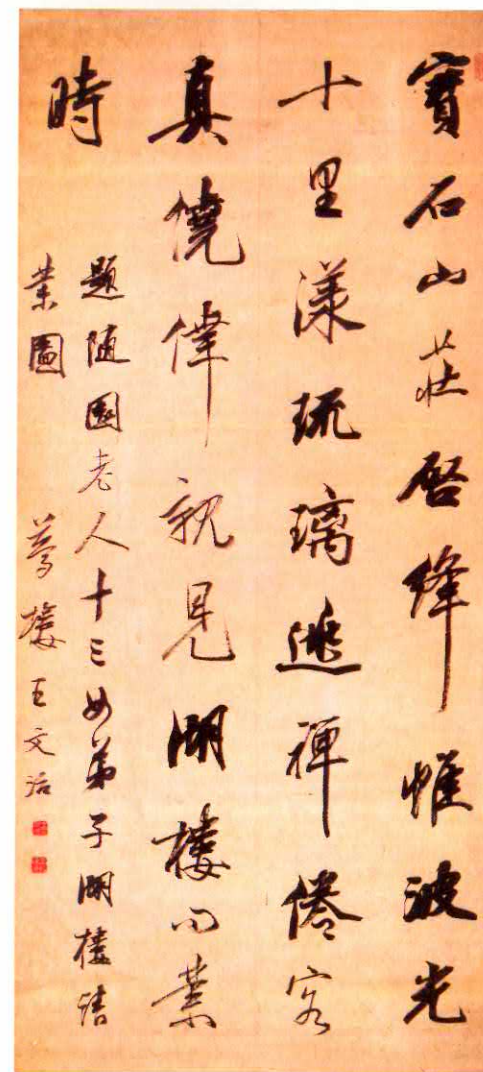 寶石山莊啓絳帷波光
十里漾琉璃逃禪倦客
真僥倖親見湖樓問業
時
題隨園老人十三女弟子湖樓請
業圖
夢樓王文治